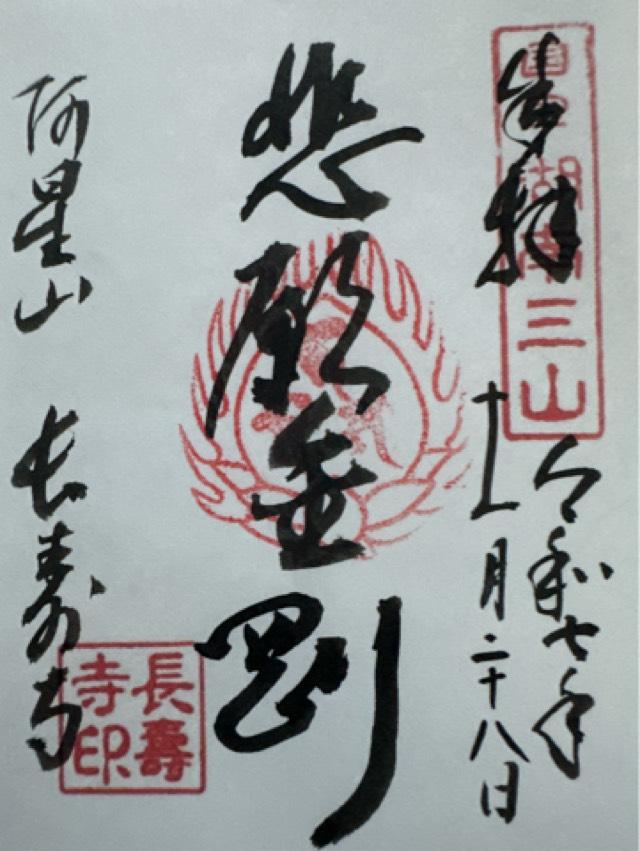 奉拝
湖南三山
令和七年
十一月二十八日
悲願金剛
阿星山 長寿寺
長壽
寺印